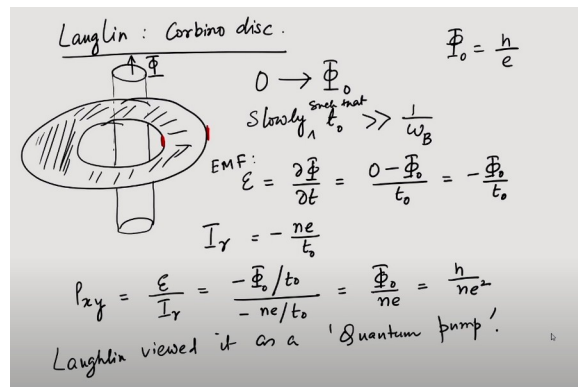 Lauglin : Corbino disc.
Φ₀ = h/e
Φ
0 → Φ₀
Slowly such that t₀ >> 1/ω_B
EMF:
ε = ∂Φ/∂t = (0 - Φ₀)/t₀ = - Φ₀/t₀
I_r = - ne/t₀
ρ_xy = ε/I_r = (-Φ₀/t₀)/(-ne/t₀) = Φ₀/ne = h/ne²
Laughlin viewed it as a 'Quantum pump'.